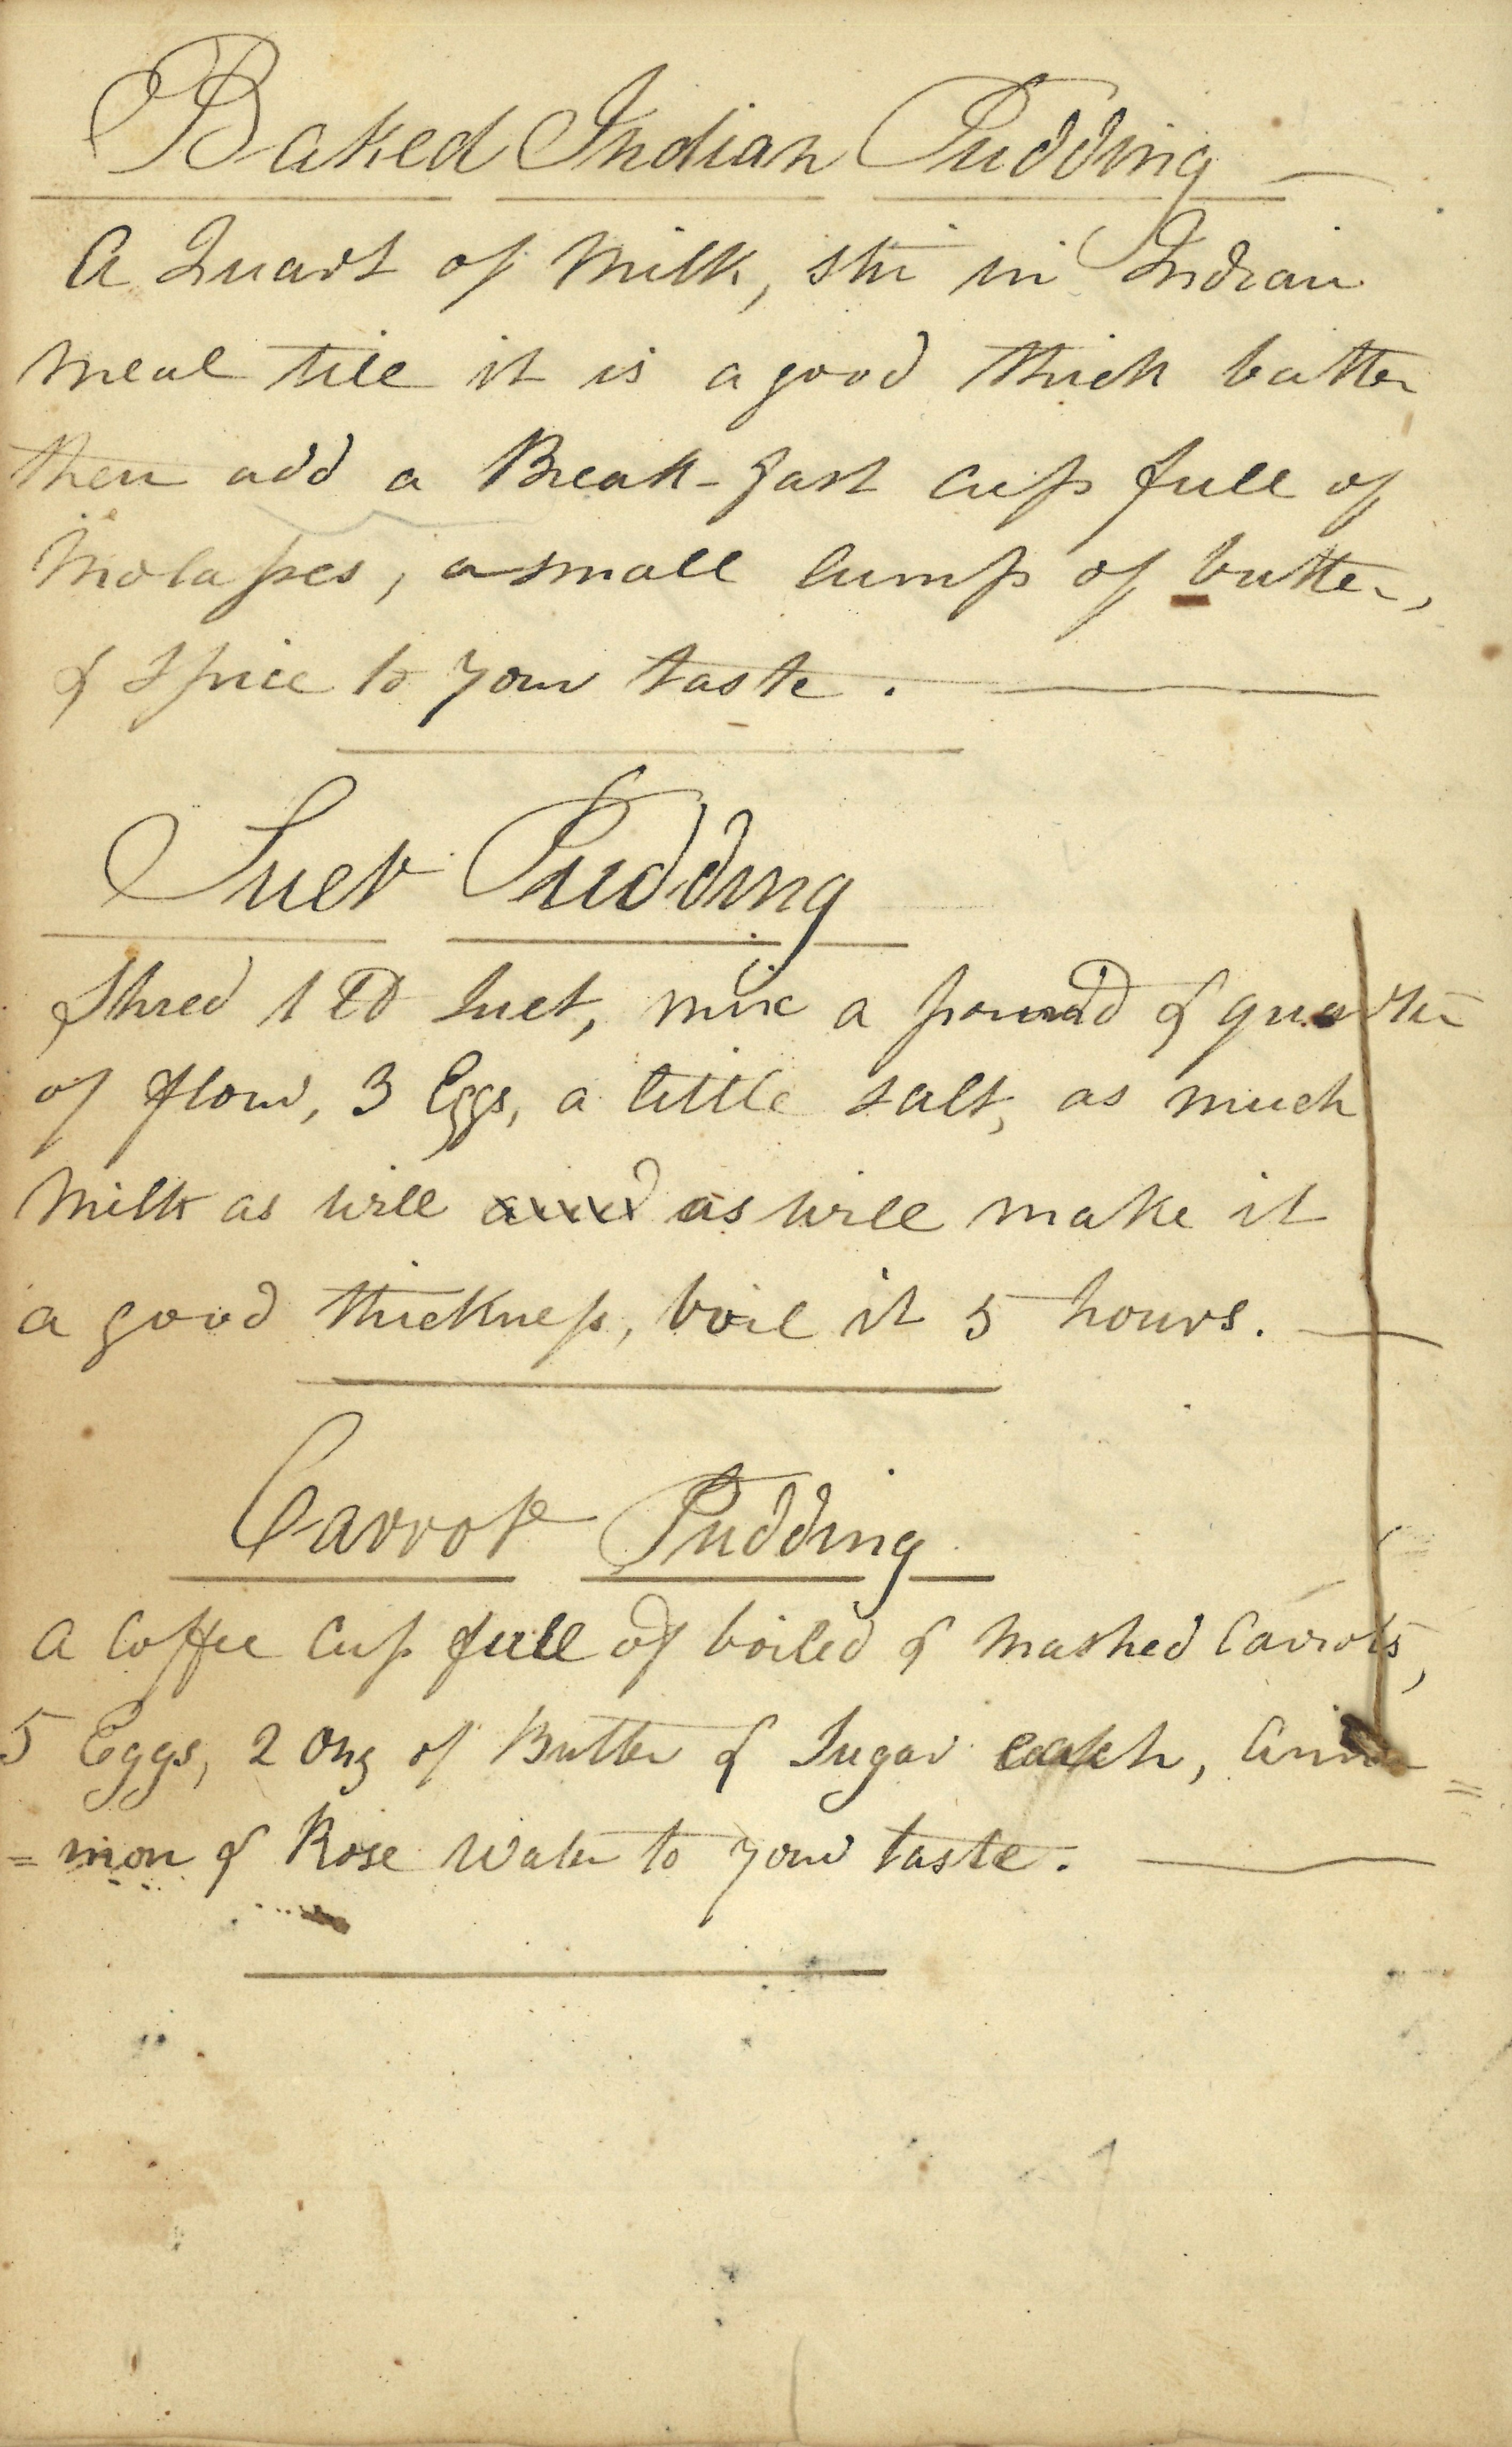 Baked Indian Pudding
A Quart of Milk, stir in Indian
meal till it is a good thick batter
then add a Break-fast cup full of
Molasses, a small lump of butter,
& spice to your taste.
Suet Pudding
Shred 1 lb Suet, mix a pound & quarter
of flour, 3 Eggs, a little salt, as much
Milk as will as will make it
a good thickness, boil it 5 hours.
Carrot Pudding
A Coffee Cup full of boiled & Mashed Carrots,
5 Eggs, 2 Onz of Butter & Sugar each, Cinna=
=mon & Rose Water to your taste.